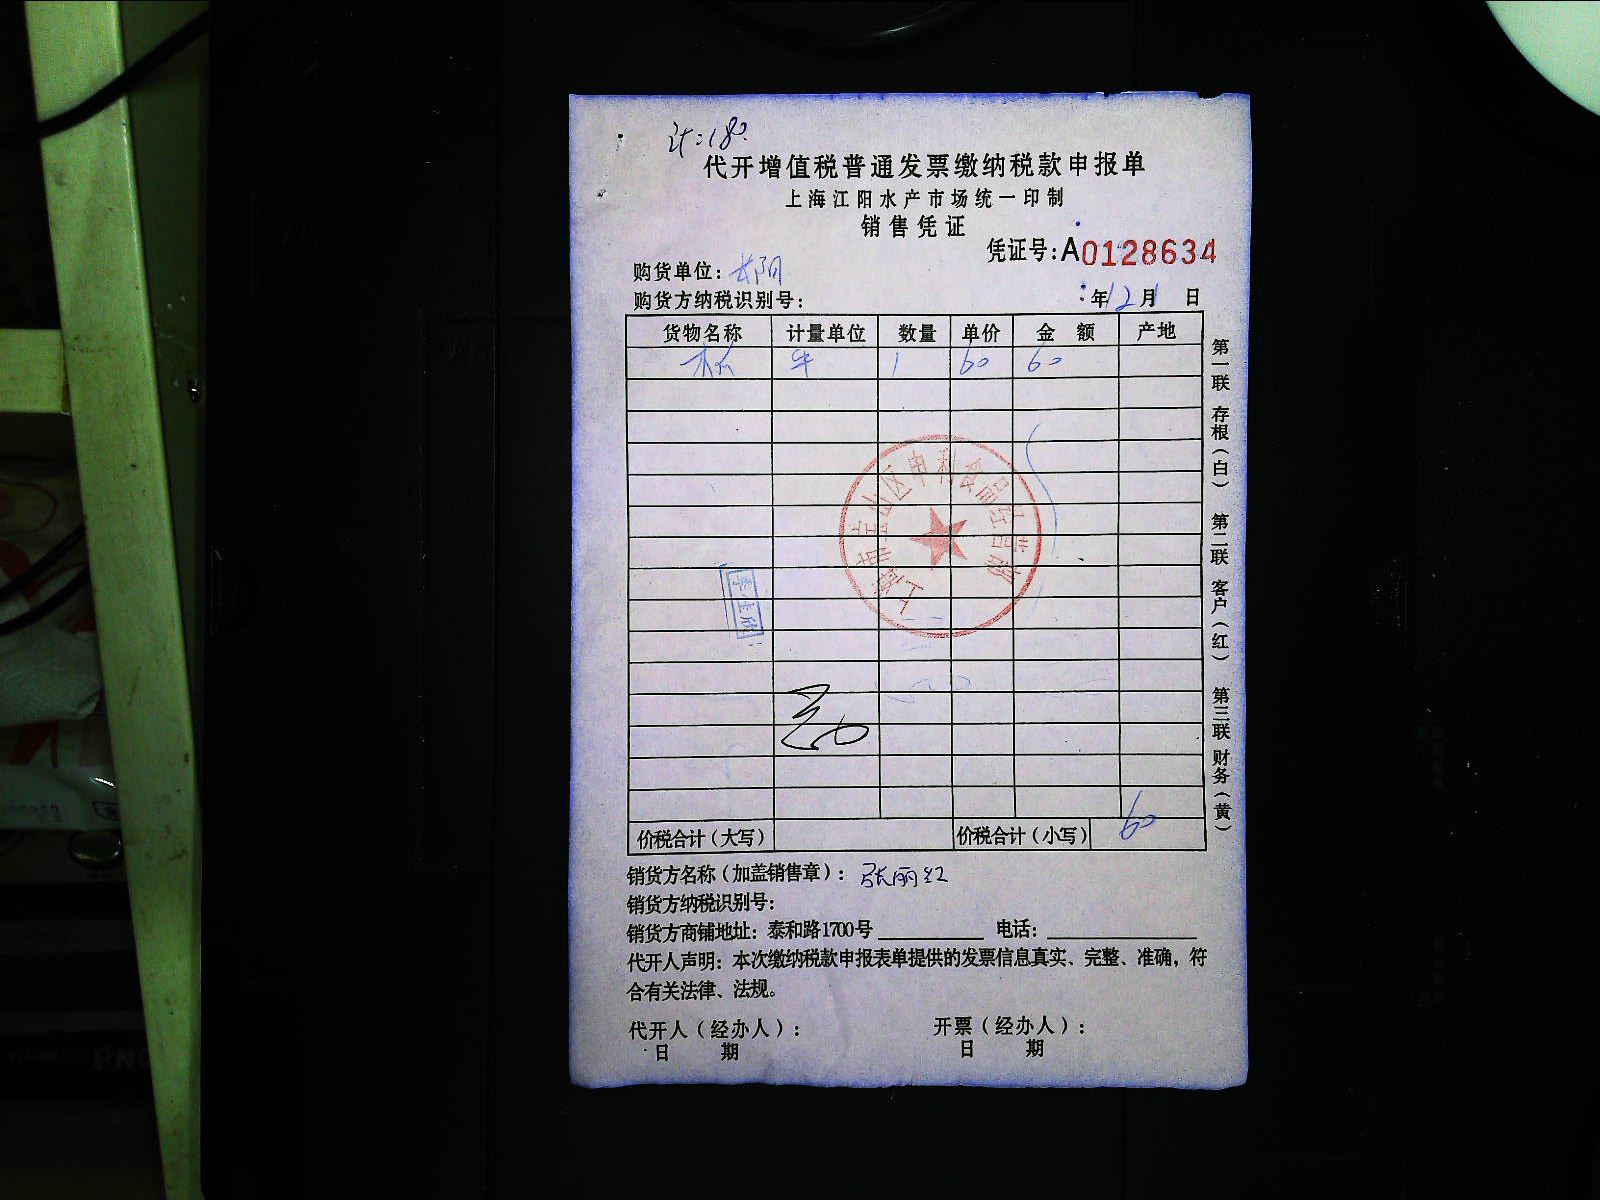 计:180
代开增值税普通发票缴纳税款申报单
上海江阳水产市场统一印制
销售凭证
凭证号:A0128634
购货单位: 长阳
购货方纳税识别号:
年12月1日
货物名称 计量单位 数量 单价 金额 产地
1 60 60
第一联 存根(白) 第二联 客户(红) 第三联 财务(黄)
上海市宝山区申利食品经营部
价税合计(大写) 价税合计(小写) 60
销货方名称(加盖销售章): 张丽红
销货方纳税识别号:
销货方商铺地址: 泰和路1700号 电话:
代开人声明: 本次缴纳税款申报表单提供的发票信息真实、完整、准确,符
合有关法律、法规。
代开人(经办人): 开票(经办人):
日期 日期